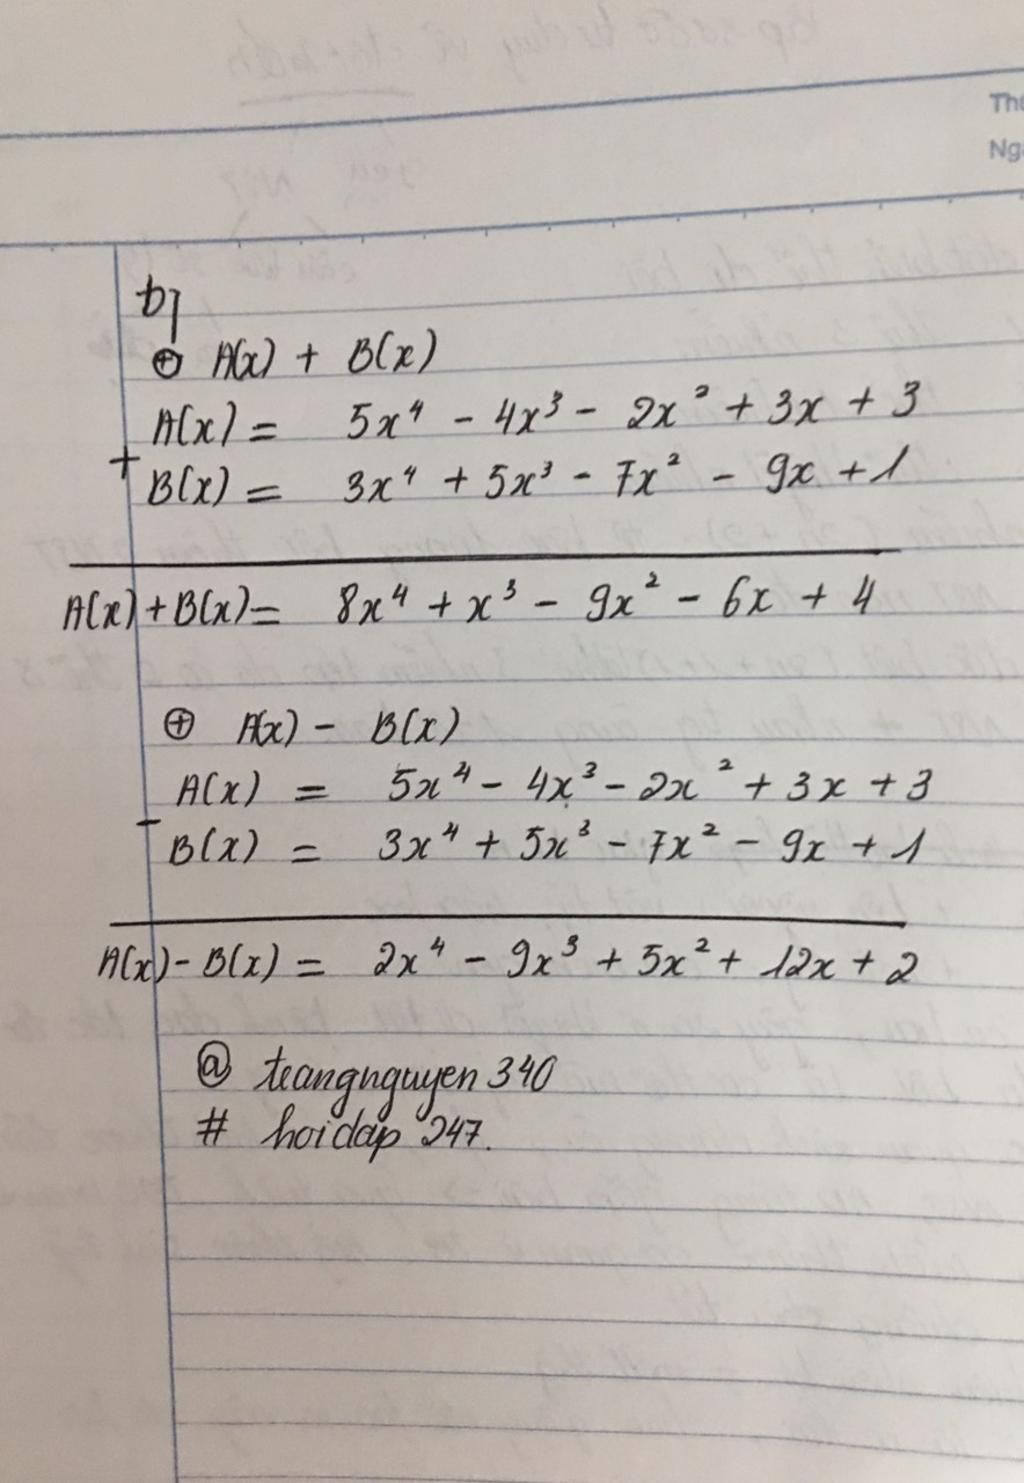 Thứ
Ngà
b)
⊕ A(x) + B(x)
A(x) = 5x⁴ - 4x³ - 2x² + 3x + 3
+
B(x) = 3x⁴ + 5x³ - 7x² - 9x + 1
A(x) + B(x) = 8x⁴ + x³ - 9x² - 6x + 4
⊕ A(x) - B(x)
A(x) = 5x⁴ - 4x³ - 2x² + 3x + 3
-
B(x) = 3x⁴ + 5x³ - 7x² - 9x + 1
A(x) - B(x) = 2x⁴ - 9x³ + 5x² + 12x + 2
@ trangnguyen 340
# hoidap 247.